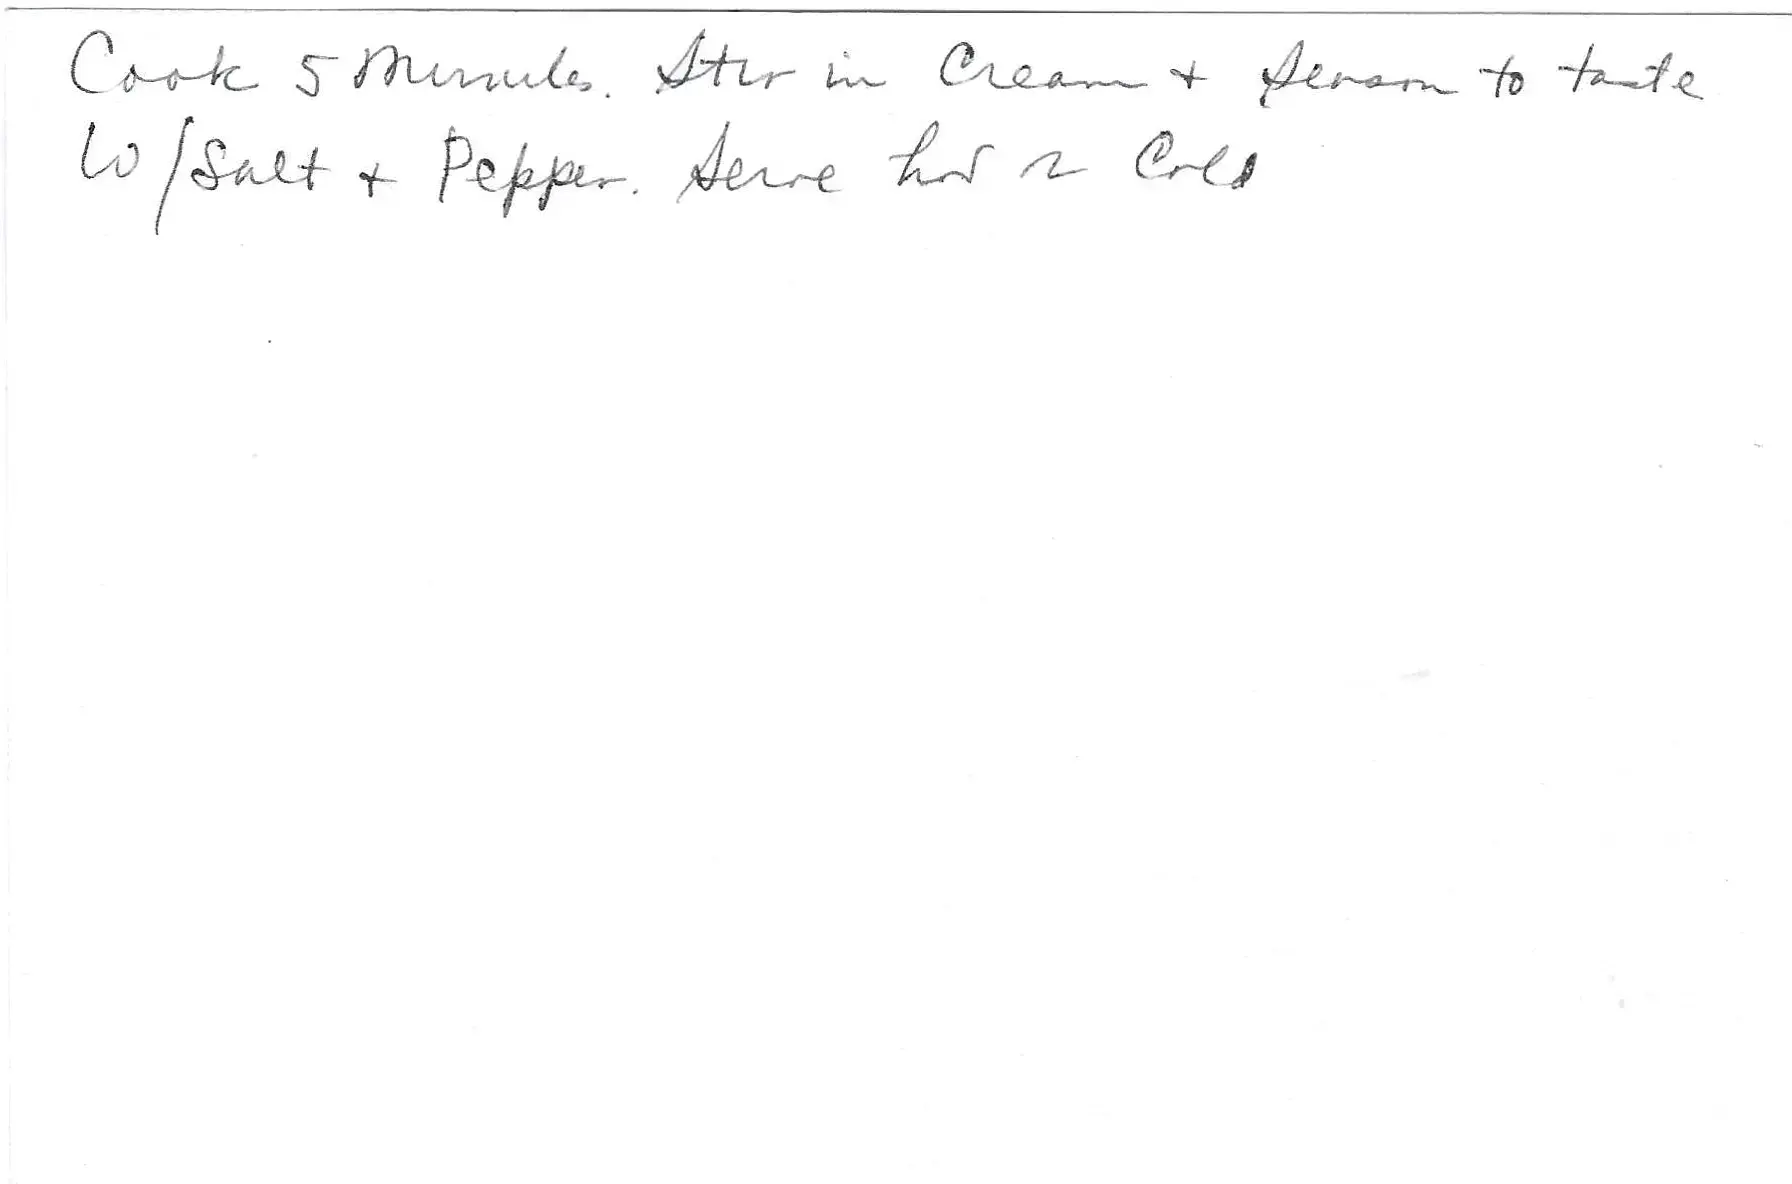 Cook 5 Minutes. Stir in Cream + Season to taste
W/Salt + Pepper. Serve hot or Cold